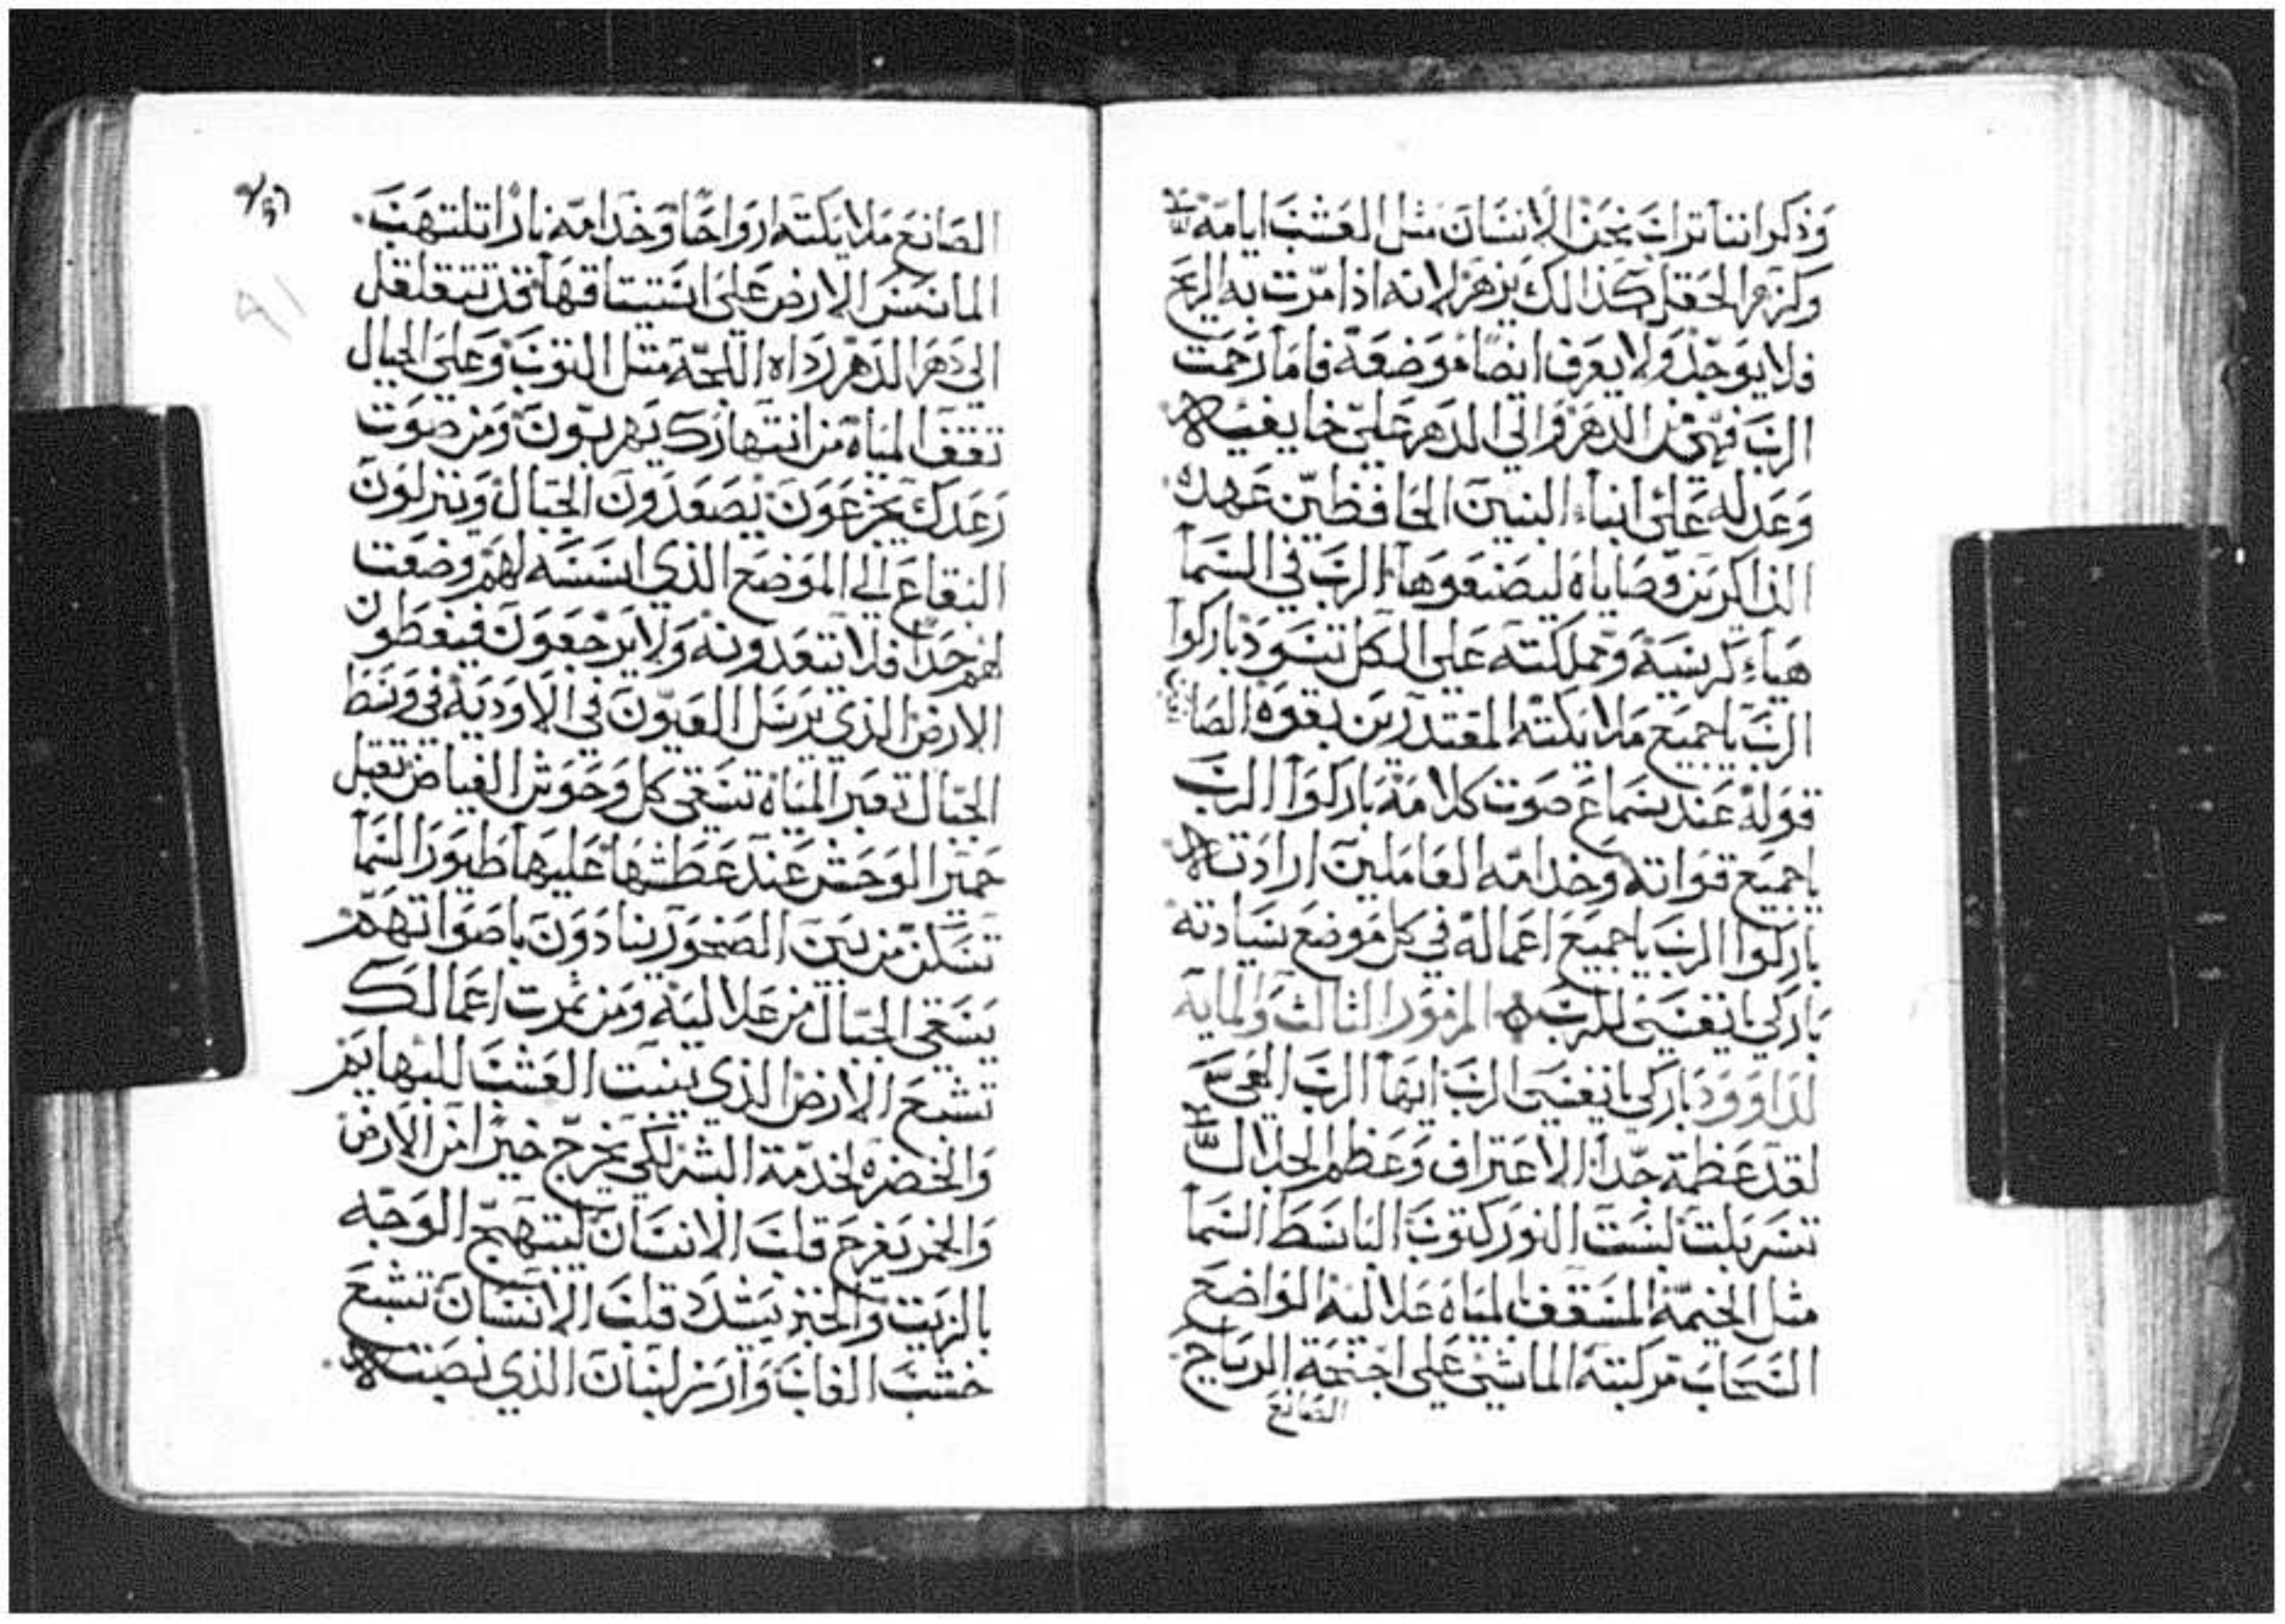 وَذكر اننا تراب نحن الانسَان مثل العشب ايامه
وكزهر الحقل كذالك يزهر لانه اذا مرّت به الريح
فلا يوجد ولا يعرف ايضا موضعه فاما رحمت
الرب فهي من الدهر والي الدهر علي خايفيه
وعدله علي ابناء البنين الحافظين عهده
الذاكرين وصاياه ليصنعوها الرب في السما
هياء كرسيه ومملكته علي الكل تسود باركوا
الرب يا جميع ملايكته المقتدرين بقوه الصانعين
قوله عند سماع صوت كلامه باركوا الرب
يا جميع قواته وخدامه العاملين ارادته
باركوا الرب يا جميع اعماله في كل موضع سيادته
باركي يا نفسي للرب ه المزمور الثالث والمايه
لداوود باركي يا نفسي الرب ايها الرب الهي
لقد عظمة جدا الاعتراف وعظم الجلال
تسربلت لبست النور كتوب الباسط السما
مثل الخيمة المسقف المياه علاليه الواضع
السحاب مركبته الماشي علي اجنحة الرياح
الصانع
الصانع ملايكته ارواحا وخدامه نارا تلتهب
الماسس الارض علي استيتاقها فد تتقلقل
الي دهر الدهر رداه اللجة متل التوب وعلي الجبال
تقف المياه من انتهارك يهربون ومن صوت
رعدك يجزعون يصعدون الجبال وينزلون
البقاع الي الموضع الذي اسسه لهم وضعت
لهم حدا فلا تتعدونه ولا يرجعون فيغطون
الارض الذي يرسل العيون في الاوديه في وسط
الجبال تعبر المياه تسقي كل وحوش الغياض تقبل
حمير الوحش عند عطشها عليها طيور السما
تسكن من بين الصخور ينادون باصواتهم
يسقي الجبال من علاليه ومن تمرت اعمالك
تشبع الارض الذي ينبت العشب للبهايم
والخضره لخدمة البشر لكي يخرج خبرا من الارض
والخمر يفرح قلب الانسان ليبتهج الوجه
بالزيت والخبز يشدد قلب الانسان تشبع
خشب الغاب وارز لبنان الذي نصبته